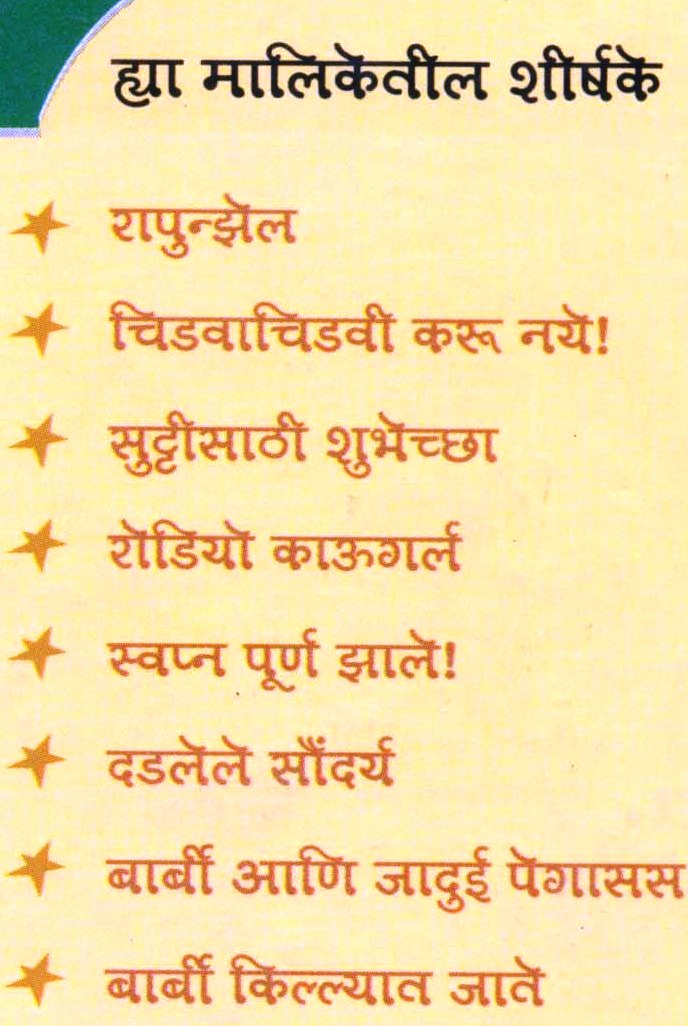 ह्या मालिकेतील शीर्षके
रापुन्झेल
चिडवाचिडवी करू नये!
सुट्टीसाठी शुभेच्छा
रोडियो काऊगर्ल
स्वप्न पूर्ण झाले!
दडलेले सौंदर्य
बार्बी आणि जादुई पेगासस
बार्बी किल्ल्यात जाते